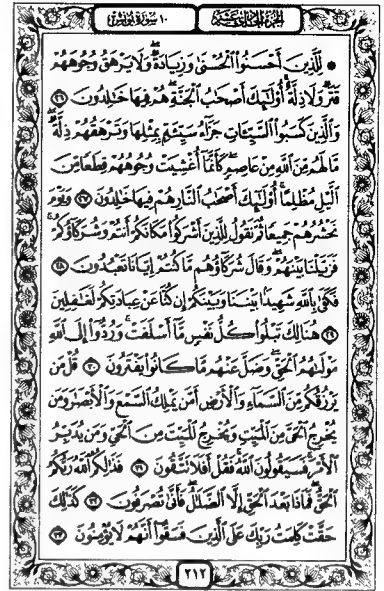 الجزء الحادي عشر ١٠ سورة يونس
۞ لِّلَّذِينَ أَحْسَنُوا۟ ٱلْحُسْنَىٰ وَزِيَادَةٌ ۖ وَلَا يَرْهَقُ وُجُوهَهُمْ
قَتَرٌ وَلَا ذِلَّةٌ ۚ أُو۟لَٰٓئِكَ أَصْحَٰبُ ٱلْجَنَّةِ ۖ هُمْ فِيهَا خَٰلِدُونَ ٢٦
وَٱلَّذِينَ كَسَبُوا۟ ٱلسَّيِّـَٔاتِ جَزَآءُ سَيِّئَةٍۭ بِمِثْلِهَا وَتَرْهَقُهُمْ ذِلَّةٌ ۖ
مَّا لَهُم مِّنَ ٱللَّهِ مِنْ عَاصِمٍ ۖ كَأَنَّمَآ أُغْشِيَتْ وُجُوهُهُمْ قِطَعًا مِّنَ
ٱلَّيْلِ مُظْلِمًا ۚ أُو۟لَٰٓئِكَ أَصْحَٰبُ ٱلنَّارِ ۖ هُمْ فِيهَا خَٰلِدُونَ ٢٧ وَيَوْمَ
نَحْشُرُهُمْ جَمِيعًا ثُمَّ نَقُولُ لِلَّذِينَ أَشْرَكُوا۟ مَكَانَكُمْ أَنتُمْ وَشُرَكَآؤُكُمْ ۚ
فَزَيَّلْنَا بَيْنَهُمْ ۖ وَقَالَ شُرَكَآؤُهُم مَّا كُنتُمْ إِيَّانَا تَعْبُدُونَ ٢٨
فَكَفَىٰ بِٱللَّهِ شَهِيدًۢا بَيْنَنَا وَبَيْنَكُمْ إِن كُنَّا عَنْ عِبَادَتِكُمْ لَغَٰفِلِينَ
٢٩ هُنَالِكَ تَبْلُوا۟ كُلُّ نَفْسٍ مَّآ أَسْلَفَتْ ۚ وَرُدُّوٓا۟ إِلَى ٱللَّهِ
مَوْلَىٰهُمُ ٱلْحَقِّ ۖ وَضَلَّ عَنْهُم مَّا كَانُوا۟ يَفْتَرُونَ ٣٠ قُلْ مَن
يَرْزُقُكُم مِّنَ ٱلسَّمَآءِ وَٱلْأَرْضِ أَمَّن يَمْلِكُ ٱلسَّمْعَ وَٱلْأَبْصَٰرَ وَمَن
يُخْرِجُ ٱلْحَىَّ مِنَ ٱلْمَيِّتِ وَيُخْرِجُ ٱلْمَيِّتَ مِنَ ٱلْحَىِّ وَمَن يُدَبِّرُ
ٱلْأَمْرَ ۚ فَسَيَقُولُونَ ٱللَّهُ ۚ فَقُلْ أَفَلَا تَتَّقُونَ ٣١ فَذَٰلِكُمُ ٱللَّهُ رَبُّكُمُ
ٱلْحَقُّ ۖ فَمَاذَا بَعْدَ ٱلْحَقِّ إِلَّا ٱلضَّلَٰلُ ۖ فَأَنَّىٰ تُصْرَفُونَ ٣٢ كَذَٰلِكَ
حَقَّتْ كَلِمَتُ رَبِّكَ عَلَى ٱلَّذِينَ فَسَقُوٓا۟ أَنَّهُمْ لَا يُؤْمِنُونَ ٣٣
٢١٢